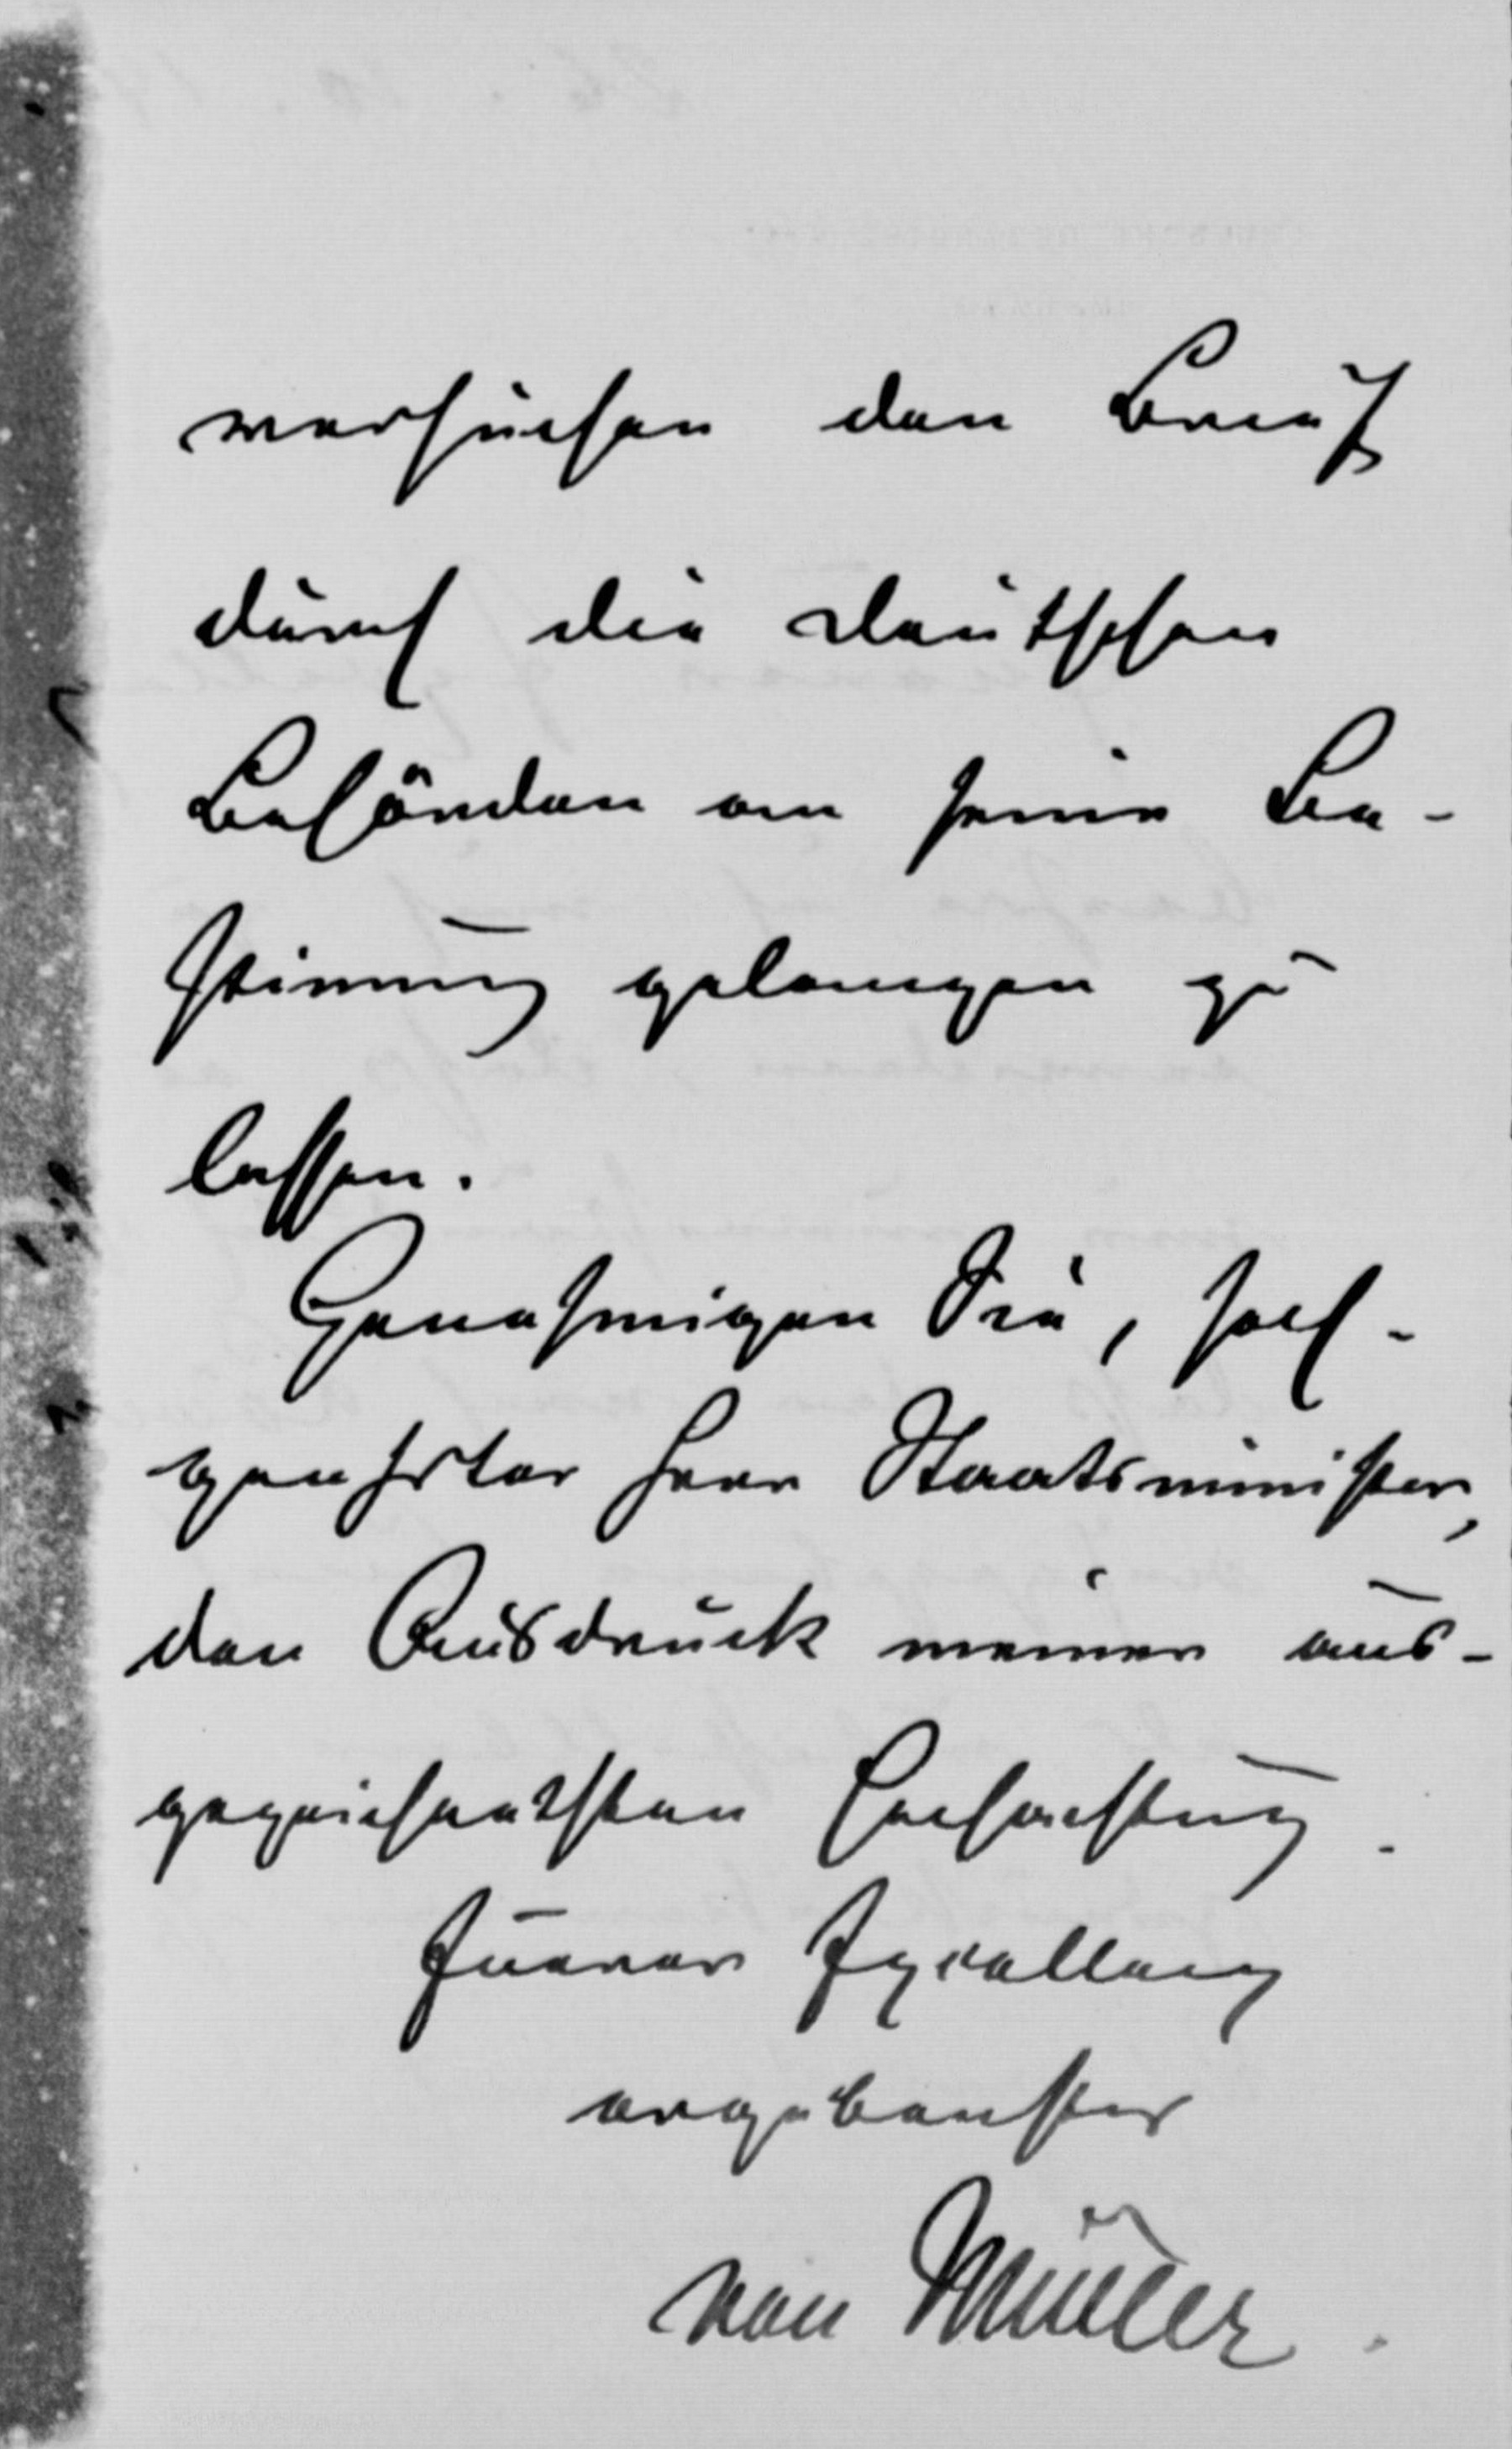 versuchen den Brief
durch die deutschen
Behörden an seine Be-
stimmung gelangen zu
lassen.
Genehmigen Sie, hoch-
geehrter Herr Staatsminister,
den Ausdruck meiner aus-
gezeichnetsten Hochachtung.
Euerer Excellenz
ergebenster
von Müller.